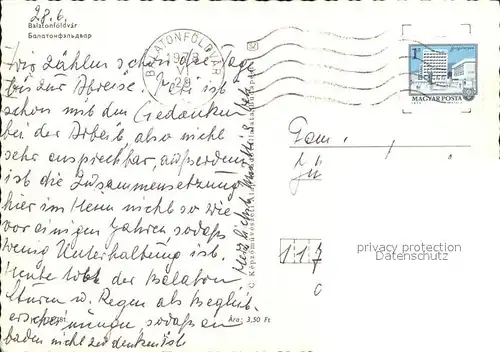 28.6.
Balatonföldvár
Балатонфэльдвар
Wir zählen schon die Tage
bis zur Abreise. ist
schon mit den Gedanken
bei der Arbeit also nicht
sehr ansprechbar, außerdem
ist die Zusammensetzung
hier im Heim nicht so wie
vor einigen Jahren, sodaß
wenig Unterhaltung ist.
Heute tobt der Balaton
Sturm u. Regen als Begleit-
erscheinungen, sodaß an
baden nicht zu denken ist.
BALATONFÖLDVÁR
Herzlichst
Képzőművészeti Alap
Ára: 3,50 Ft
1Ft
MAGYAR POSTA
Fam.
privacy protection
Datenschutz